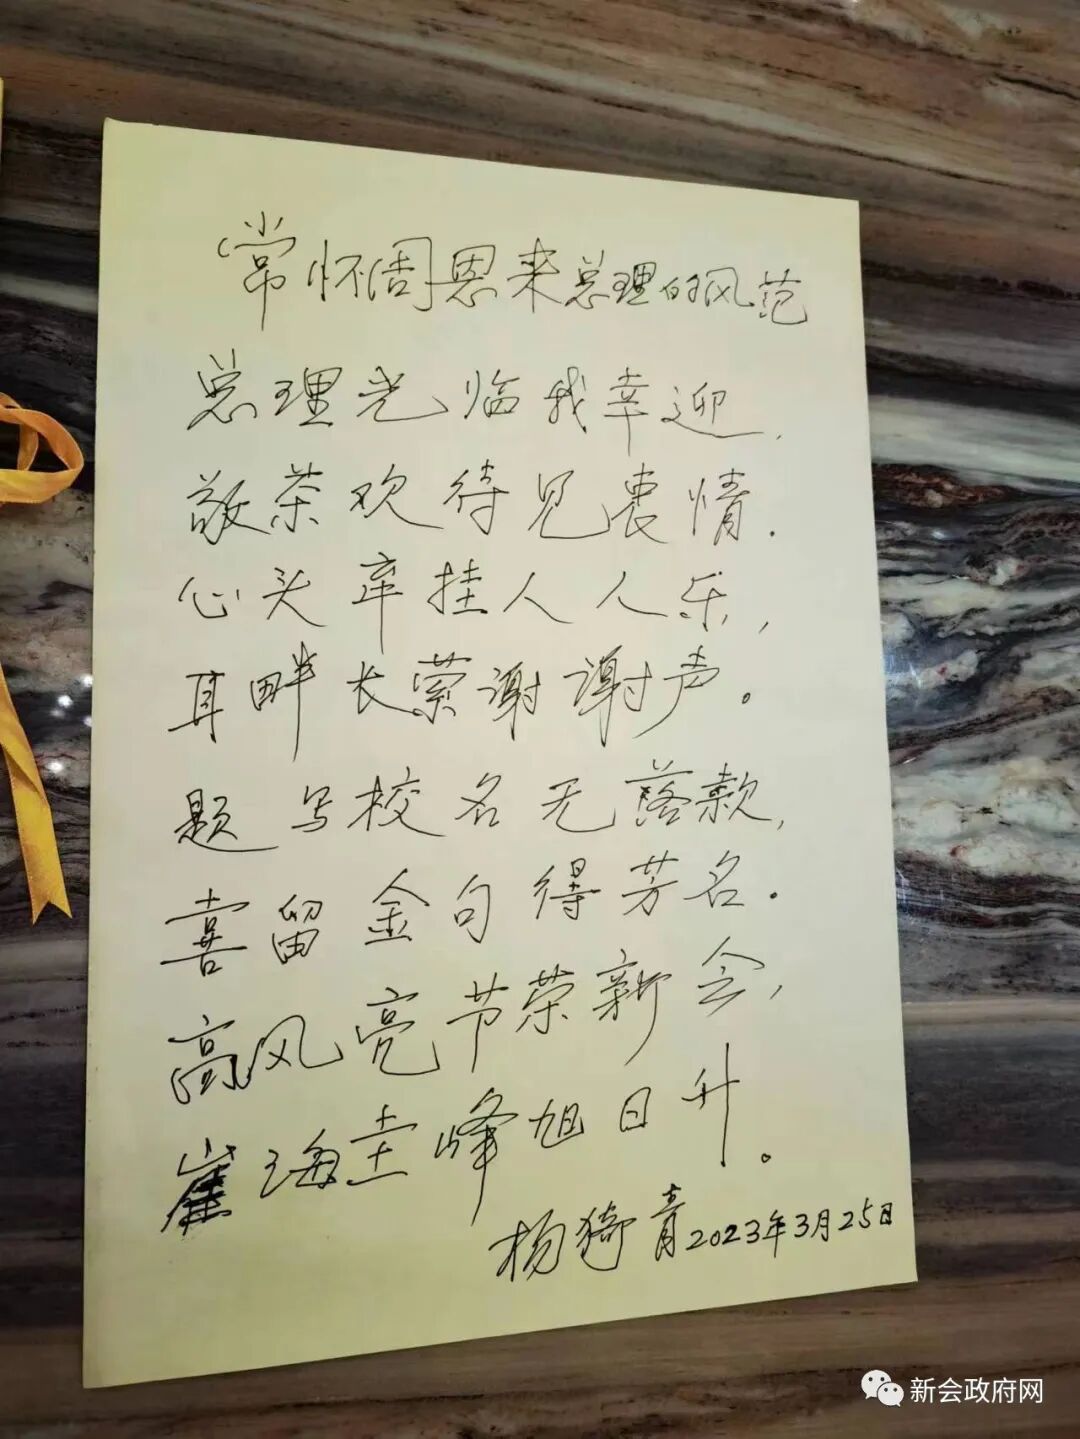 常怀周恩来总理的风范
总理光临我幸迎，
敬茶欢待见衷情．
心头牵挂人人乐，
耳畔长萦谢谢声。
题写校名无落款，
喜留金句得芳名．
高风亮节荣新会，
崖海圭峰旭日升。
杨猗青2023年3月25日
新会政府网